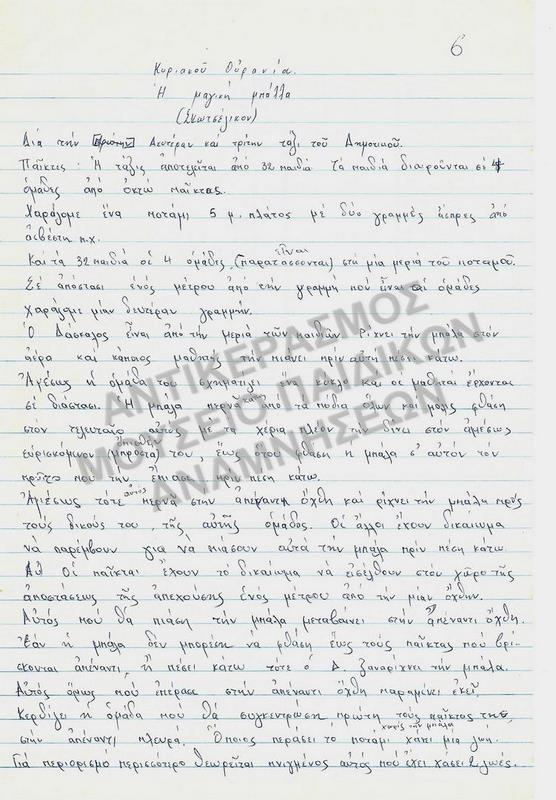 6
Κυριακού Οὐρανία.
Ἡ μαγική μπάλλα
(Σκωτσέζικον)
Διά τήν πρώτην Δευτέραν καί τρίτην τάξι τοῦ Δημοτικοῦ.
Παῖκτες: Ἡ τάξις ἀποτελεῖται ἀπό 32 παιδιά Τά παιδιά διαιροῦνται σέ 4
ὁμάδες ἀπό ὀκτώ παῖκτας.
Χαράζομε ἕνα ποτάμι 5 μ. πλάτος μέ δύο γραμμές ἄσπρες ἀπό
ἀσβέστη π.χ.
Καί τά 32 παιδιά σέ 4 ὁμάδες, (παρατάσσονται) εἶναι στή μία μεριά τοῦ ποταμοῦ.
Σέ ἀπόστασι ἑνός μέτρου ἀπό τήν γραμμή πού εἶναι αἱ ὁμάδες
χαράζομε μίαν δευτέραν γραμμήν.
Ὁ Δάσκαλος εἶναι ἀπό τήν μεριά τῶν παιδιῶν Ρίχνει τήν μπάλα στόν
ἀέρα καί κάποιος μαθητής τήν πιάνει πρίν αὐτή πέσει κάτω.
Ἀμέσως ἡ ὁμάδα του σχηματίζει ἕνα κύκλο καί οἱ μαθηταί ἔρχονται
σέ διάστασι. Ἡ μπάλα περνᾶ ἀπό τά πόδια ὅλων καί μόλις φθάση
στόν τελευταῖο αὐτός μέ τά χέρια πλέον τήν δίνει στόν ἀμέσως
εὑρισκόμενον (μπροστά) ὄπισθεν του, ἕως ὅτου φθάση ἡ μπάλα σ' αὐτόν τόν
πρῶτο πού τήν ἔπιασε πρίν πέση κάτω.
Ἀμέσως τότε αὐτός περνᾶ στήν ἀπέναντι ὄχθη καί ρίχνει τήν μπάλη πρός
τούς δικούς του, τῆς αὐτῆς ὁμάδος. Οἱ ἄλλοι ἔχουν δικαίωμα
νά παρέμβουν γιά νά πιάσουν αὐτοί τήν μπάλα πρίν πέση κάτω
Οἱ παῖκται ἔχουν τό δικαίωμα νά εἰσέλθουν στόν χῶρο τῆς
ἀποστάσεως τῆς ἀπεχούσης ἑνός μέτρου ἀπό τήν μίαν ὄχθην.
Αὐτός πού θά πιάση τήν μπάλα μεταβαίνει στήν ἀπέναντι ὄχθη.
Ἐάν ἡ μπάλα δέν μπορέση νά φθάση ἕως τούς παῖκτας πού βρί-
σκονται ἀπέναντι, ἤ πέσει κάτω τότε ὁ Δ. ξαναρίχνει τήν μπάλα.
Αὐτός ὅμως πού ἐπέρασε στήν ἀπέναντι ὄχθη παραμένει ἐκεῖ.
Κερδίζει ἡ ὁμάδα πού θά συγκεντρώση πρώτη τούς παῖκτας της
στήν ἀπέναντι πλευρά. Ὅποιος περάσει τό ποτάμι χωρίς τήν μπάλα χάνει μιά ζωή.
Γιά περιορισμό περισσότερο θεωρεῖται πνιγμένος αὐτός πού ἔχει χάσει 2 ζωές.
ΑΝΤΙΚΕΡΑΣΜΟΣ
ΜΟΥΣΕΙΟ ΠΑΙΔΙΚΩΝ
ΑΝΑΜΝΗΣΕΩΝ